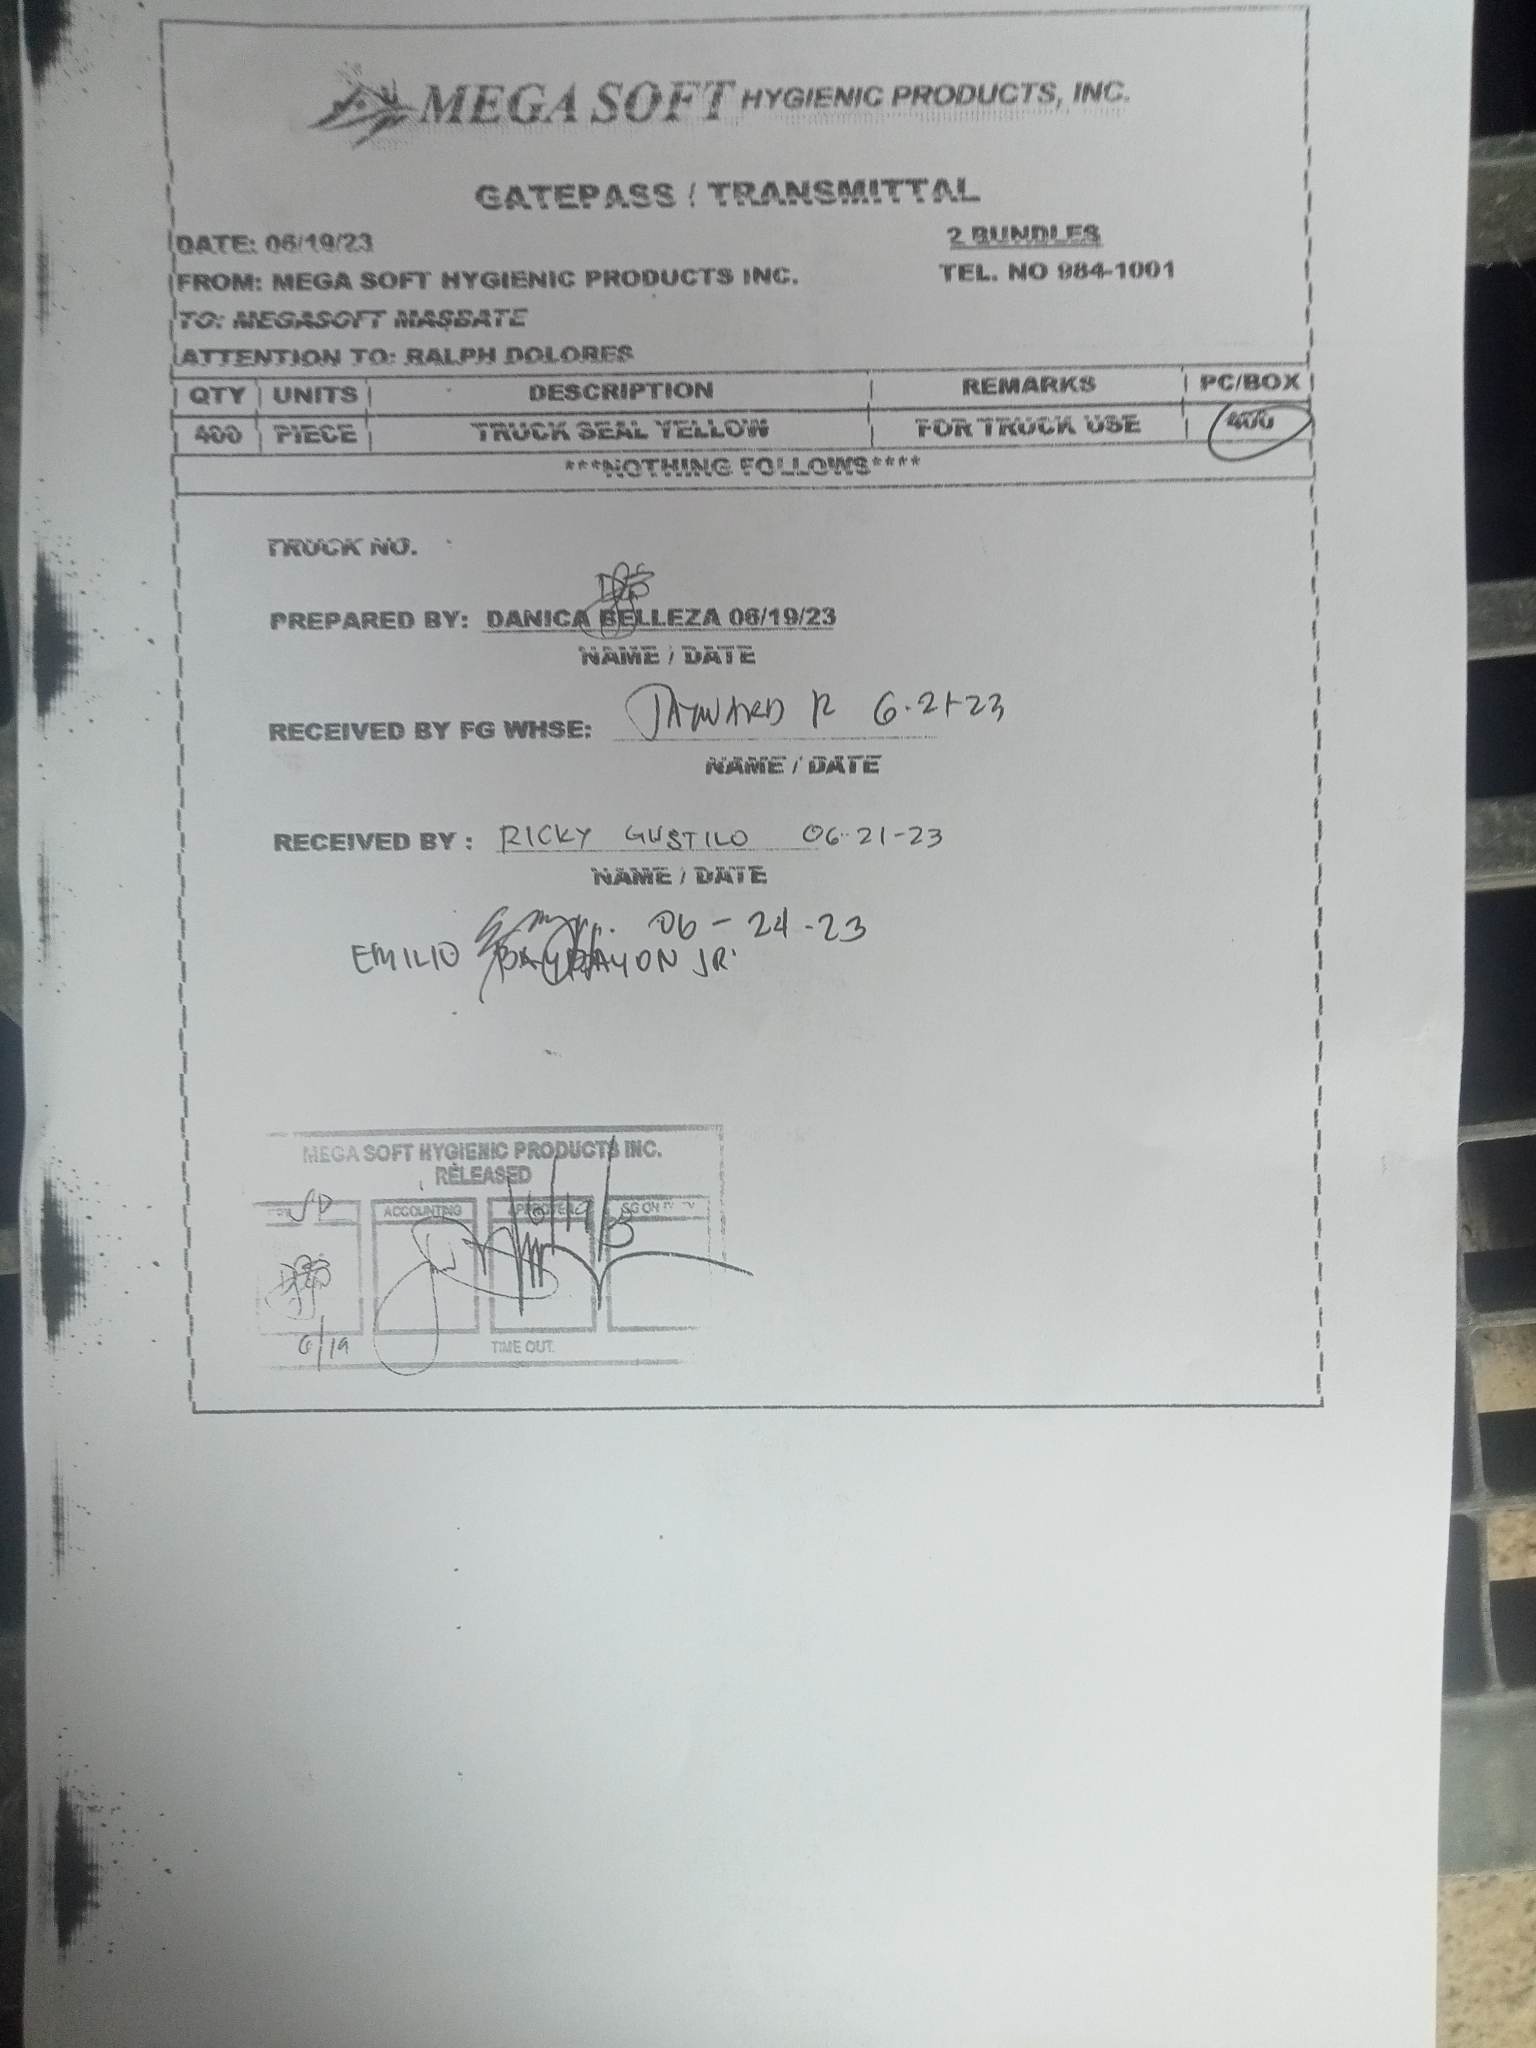 MEGA SOFT HYGIENIC PRODUCTS, INC.
GATEPASS / TRANSMITTAL
DATE: 06/19/23
2 BUNDLES
FROM: MEGA SOFT HYGIENIC PRODUCTS INC.
TEL. NO 984-1001
TO: MEGASOFT MASBATE
ATTENTION TO: RALPH DOLORES
QTY UNITS DESCRIPTION REMARKS PC/BOX
400 PIECE TRUCK SEAL YELLOW FOR TRUCK USE 400
***NOTHING FOLLOWS****
TRUCK NO.
PREPARED BY: DANICA BELLEZA 06/19/23
NAME / DATE
RECEIVED BY FG WHSE: JAYWARD R 6-21-23
NAME / DATE
RECEIVED BY : RICKY GUSTILO 06-21-23
NAME / DATE
06-24-23
EMILIO BAYBAYON JR.
MEGA SOFT HYGIENIC PRODUCTS INC.
RELEASED
ACCOUNTING
6/19
TIME OUT.